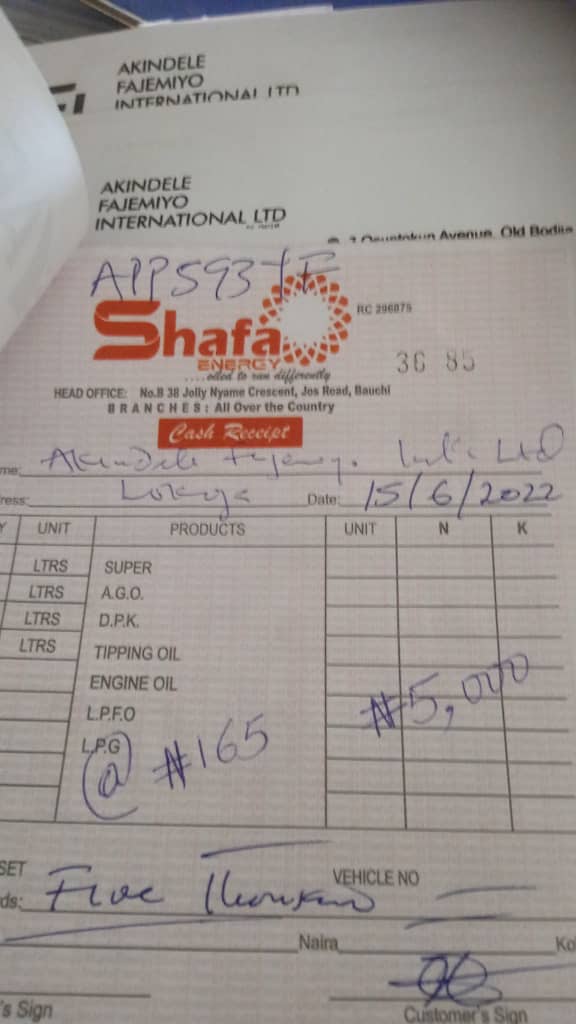 AKINDELE
FAJEMIYO
INTERNATIONAL LTD
AKINDELE
FAJEMIYO
INTERNATIONAL LTD
Avenue, Old Bodija
APP593YF
Shafa
ENERGY
RC 296875
....oiled to run differently
36 85
HEAD OFFICE: No.B 38 Jolly Nyame Crescent, Jos Road, Bauchi
BRANCHES: All Over the Country
Cash Receipt
me: Akindele Fajemiyo Int'l Ltd
ress: Lokoja Date: 15/6/2022
Y UNIT PRODUCTS UNIT N K
LTRS SUPER
LTRS A.G.O.
LTRS D.P.K.
LTRS TIPPING OIL
ENGINE OIL
L.P.F.O ₦5,000
L.P.G
@ ₦165
SET VEHICLE NO
ds: Five Thousand
Naira Ko
's Sign Customer's Sign